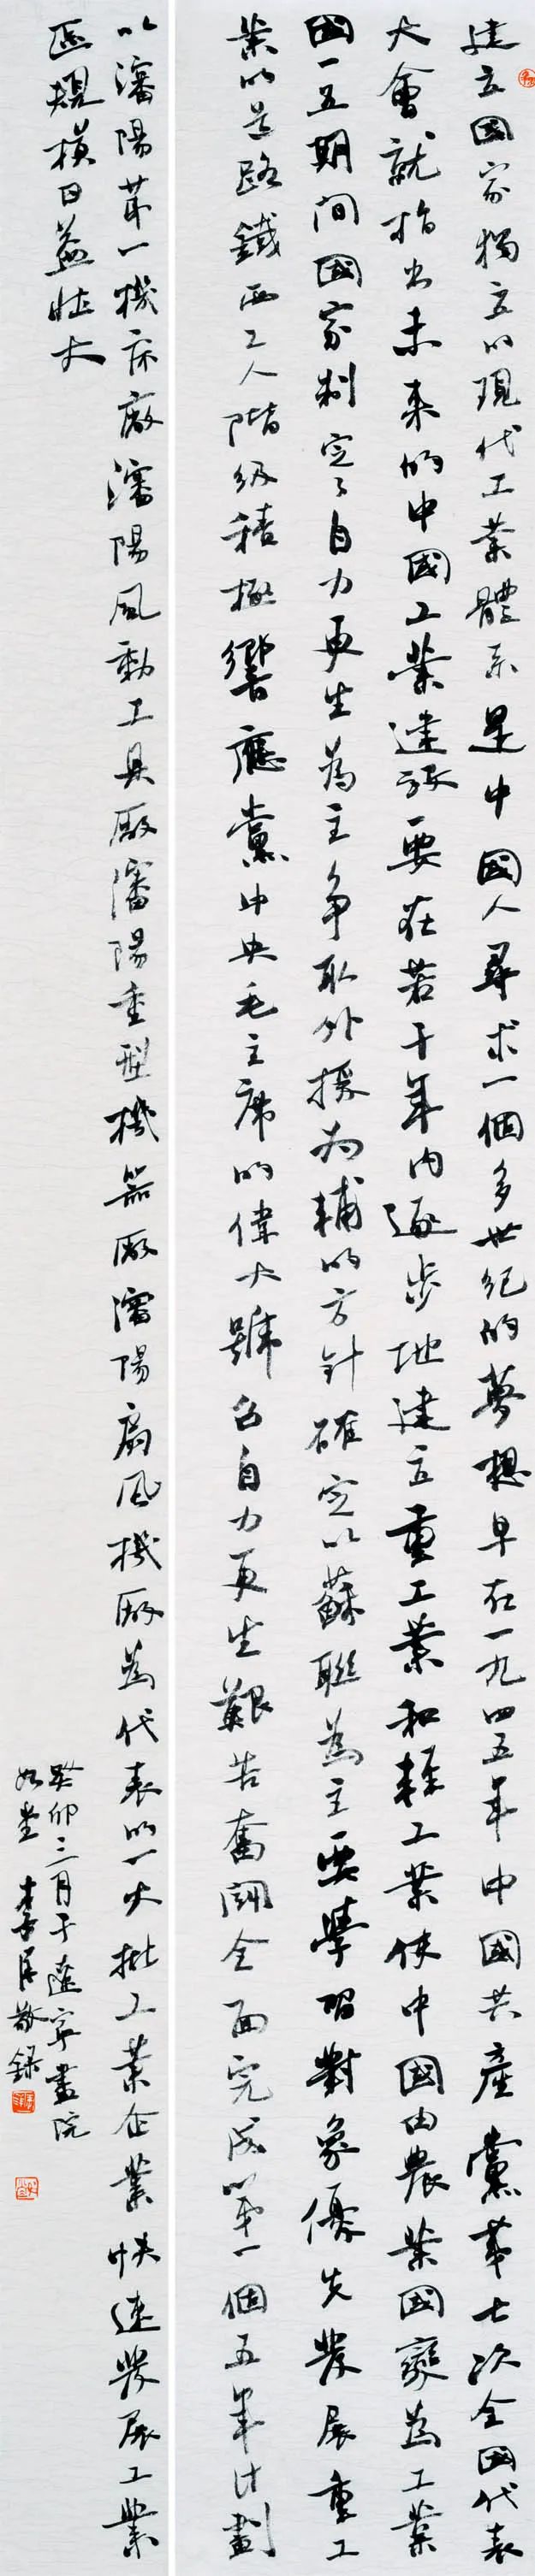 建立國家獨立的現代工業體系是中國人尋求一個多世紀的夢想早在一九四五年中國共產黨第七次全國代表
大會就指出未來的中國工業建設要在若干年內逐步地建立重工業和輕工業使中國由農業國變為工業
國一五期間國家制定了自力更生為主爭取外援為輔的方針確定以蘇聯為主要學習對象優先發展重工
業的道路鐵西工人階級積極響應黨中央毛主席的偉大號召自力更生艱苦奮鬪全面完成第一個五年計劃
以瀋陽第一機床廠瀋陽風動工具廠瀋陽重型機器廠瀋陽扇風機廠為代表的一大批工業企業快速發展工業
區規模日益壯大
癸卯三月于遼寧畫院
李 敬錄